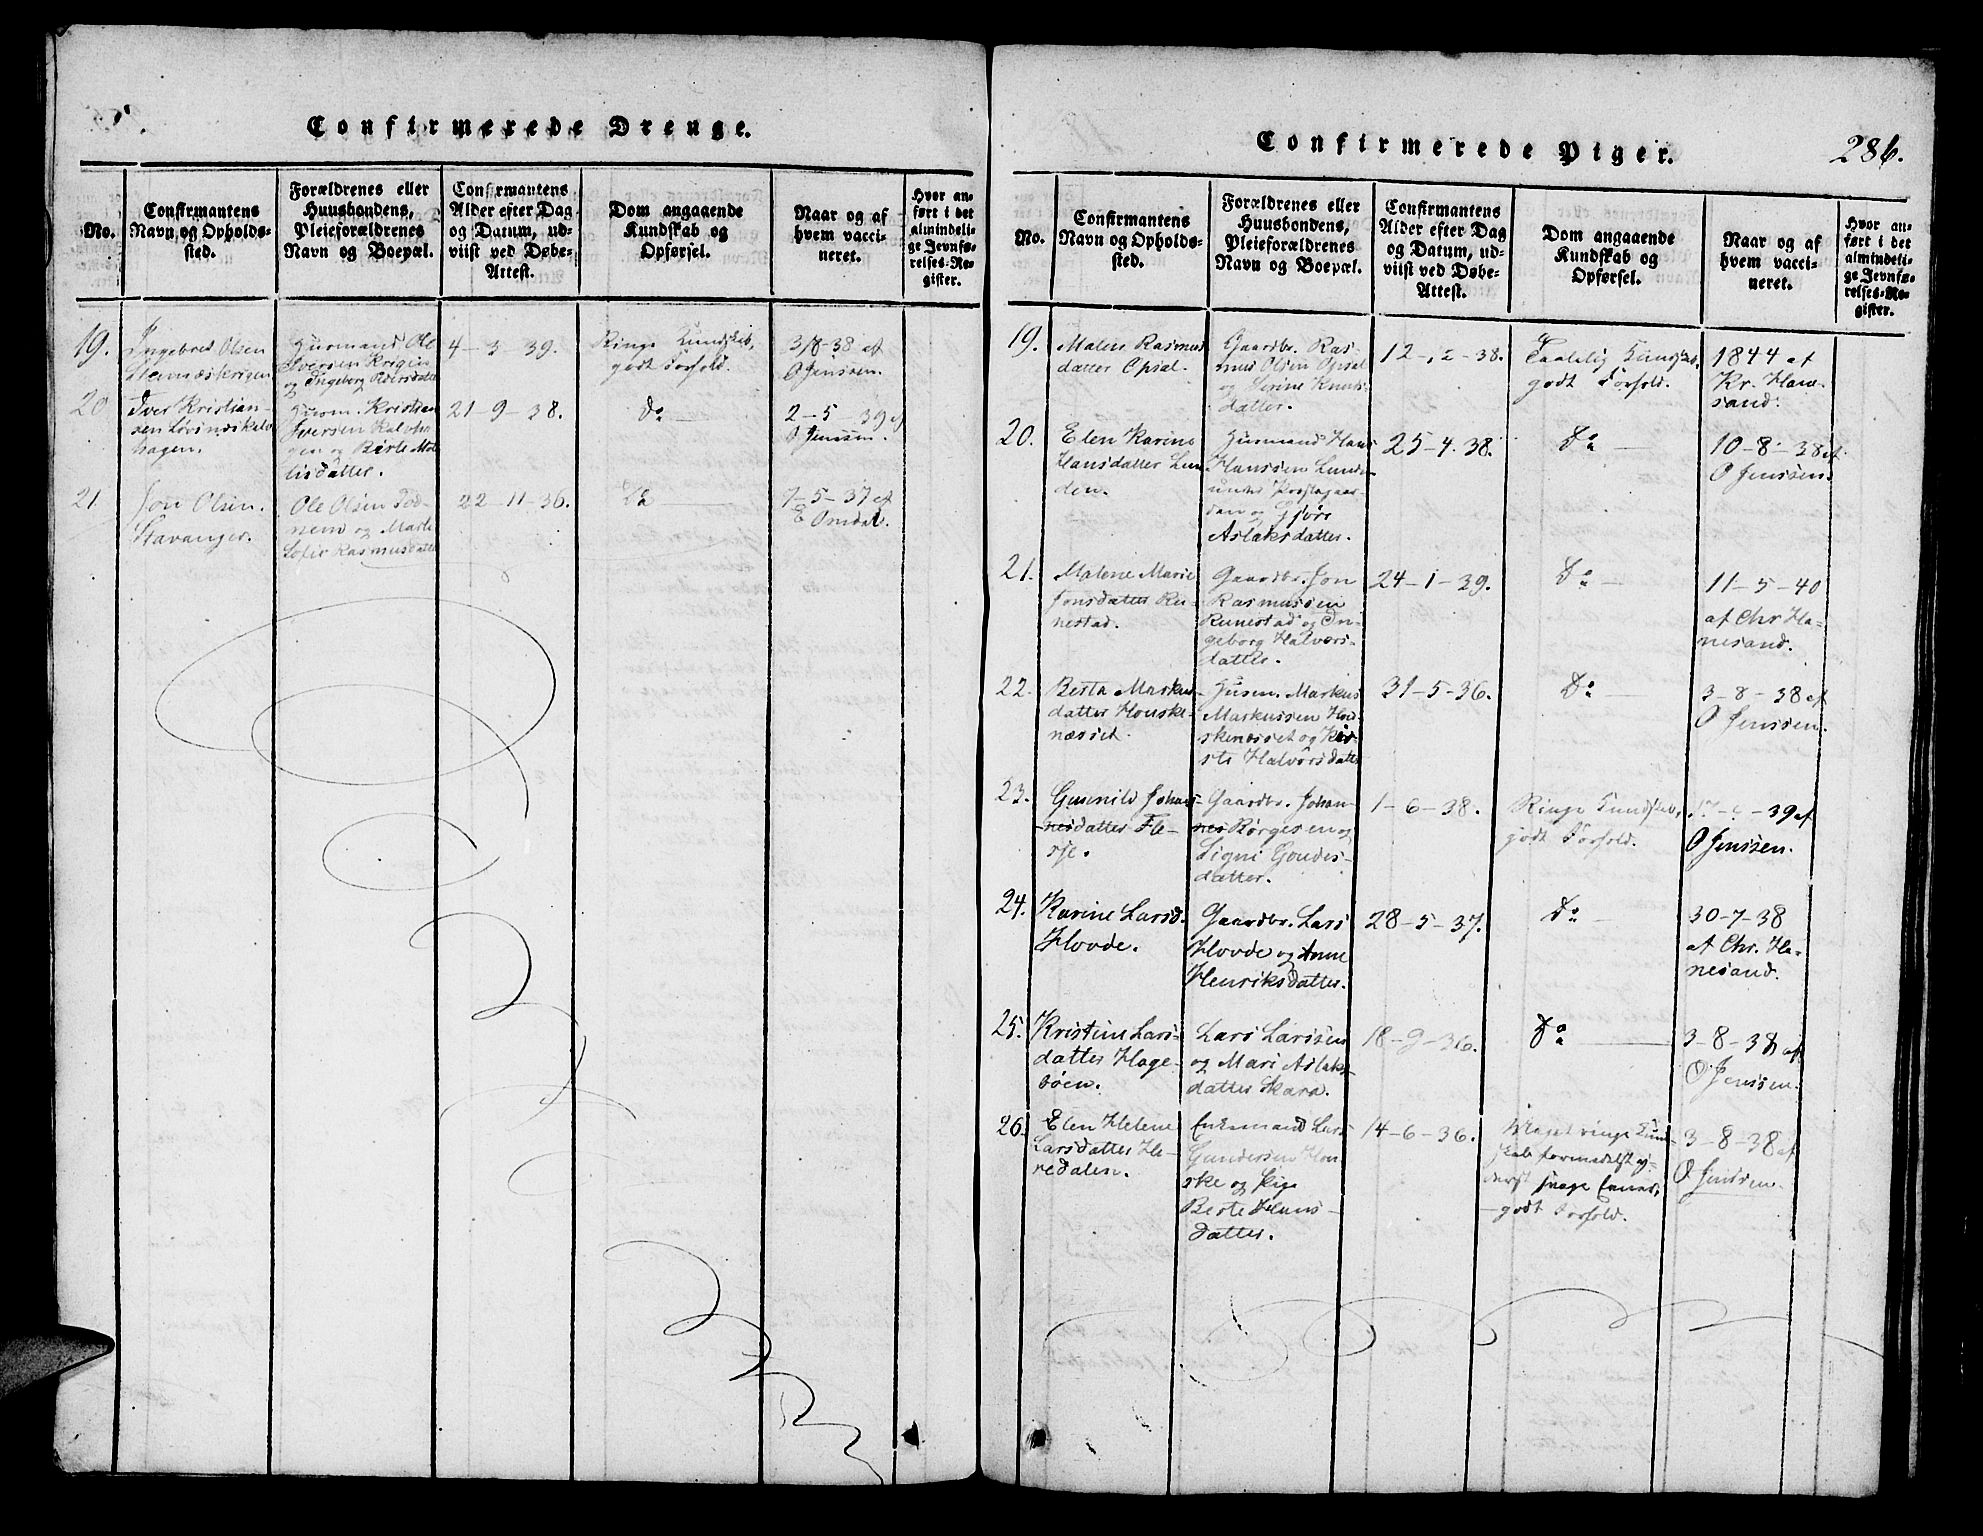 Confirmerede Drenge.
No.
Confirmantens
Navn og Opholds-
sted.
Forældrenes eller
Huusbondens,
Pleieforældrenes
Navn og Boepæl.
Confirmantens
Alder efter Dag
og Datum, ud-
viist ved Døbe-
Attest.
Dom angaaende
Kundskab og
Opførsel.
Naar og af
hvem vacci-
neret.
Hvor an-
ført i det
almindeli-
ge Jevnfø-
relses-Re-
gister.
19.
Ingebret Olsen
Husmand Ole
Iversen Krigen
og Ingeborg
4-3-39.
Ringe Kundskab,
godt Forhold.
3/8-38 af
O Jenssen.
20
Iver Kristian-
sen
hagen.
Husm. Kristian
Iversen Kalvha-
gen og Berte Mal-
lisdatter.
21-9-38.
Do
2-5 39 af
O Jenssen.
21.
Jon Olsen.
Stavanger.
Ole Olsen Tod-
nem og Marte
Sofie Rasmusdatter
22-11-36.
Do
7-5-37 af
E Omdal.
Confirmerede Piger.
286.
No.
Confirmantens
Navn og Opholds-
sted.
Forældrenes eller
Huusbondens,
Pleieforældrenes
Navn og Boepæl.
Confirmantens
Alder efter Dag
og Datum, ud-
viist ved Døbe-
Attest.
Dom angaaende
Kundskab og
Opførsel.
Naar og af
hvem vacci-
neret.
Hvor an-
ført i det
almindeli-
ge Jevnfø-
relses-Re-
gister.
19.
Malene Rasmus
datter Opsal.
Gaardbr. Ras-
mus Olsen Opsal
og Serine Knuds-
datter.
12-12-38.
Taalelig Kundskab,
godt Forhold.
1844 af
Kr. Hane-
sand.
20.
Elen Karine
Hansdatter Lun
den.
Husmand Hans
Hanssen Lunden
under Prestegaar-
den og Sjøre
Aslaksdatter.
25-4-38.
Do
10-8-38 af
O Jenssen.
21.
Malene Marie
Jonsdatter Ru-
nestad.
Gaardbr. Jon
Rasmussen
Runestad og In-
geborg Halvors-
datter.
24-1-39.
Do
11-5-40
af Chr Ha-
nesand.
22.
Berta Markus-
datter Houske-
næsset.
Husm. Markus
Markussen Hou-
skenæsset og Kir-
sti Halvorsdatter
31-5-36.
Do
3-8-38 af
O Jenssen.
23.
Gunnild Johan-
nesdatter Fle-
sje.
Gaardbr. Johan-
nes Børgesen og
Signi Goudes-
datter.
1-6-38.
Ringe Kundskab,
godt Forhold.
39 af
O Jenssen.
24.
Karine Larsd.
Hovde.
Gaardbr. Lars
Hovde og Anne
Henriksdatter.
28-5-37.
Do
30-7-38
af Chr. Ha-
nesand.
25.
Kristine Lars-
datter Hage-
bøen.
Lars Larssen
og Mari Aslaks-
datter Skara.
18-9-36.
Do
3-8-38 af
O Jenssen.
26.
Elen Helene
Larsdatter He-
redalen.
Enkemand Lars
Gundersen Hou-
ske og Pige
Berte Hans-
datter.
14-6-36.
Meget ringe Kund-
skab formedelst y-
derst svage Evner,
godt Forhold.
3-8-38 af
O Jenssen.